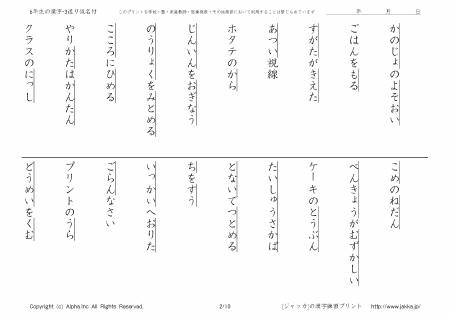 6年生の漢字-3送り仮名付
このプリントを学校・塾・家庭教師・医療機関・その他施設において利用することは禁じられています
年　月　日
かのじょのよそおい
ごはんをもる
すがたがきえた
あつい視線
ホタテのから
じんいんをおぎなう
のうりょくをみとめる
こころにひめる
やりかたはかんたん
クラスのにっし
こめのねだん
べんきょうがむずかしい
ケーキのとうぶん
たいしゅうさかば
とないでつとめる
ちをすう
いっかいへおりた
ごらんなさい
プリントのうら
どうめいをくむ
Copyright (c) Alpha.Inc All Rights Reserved.
2/10
[ジャッカ]の漢字練習プリント　http://www.jakka.jp/